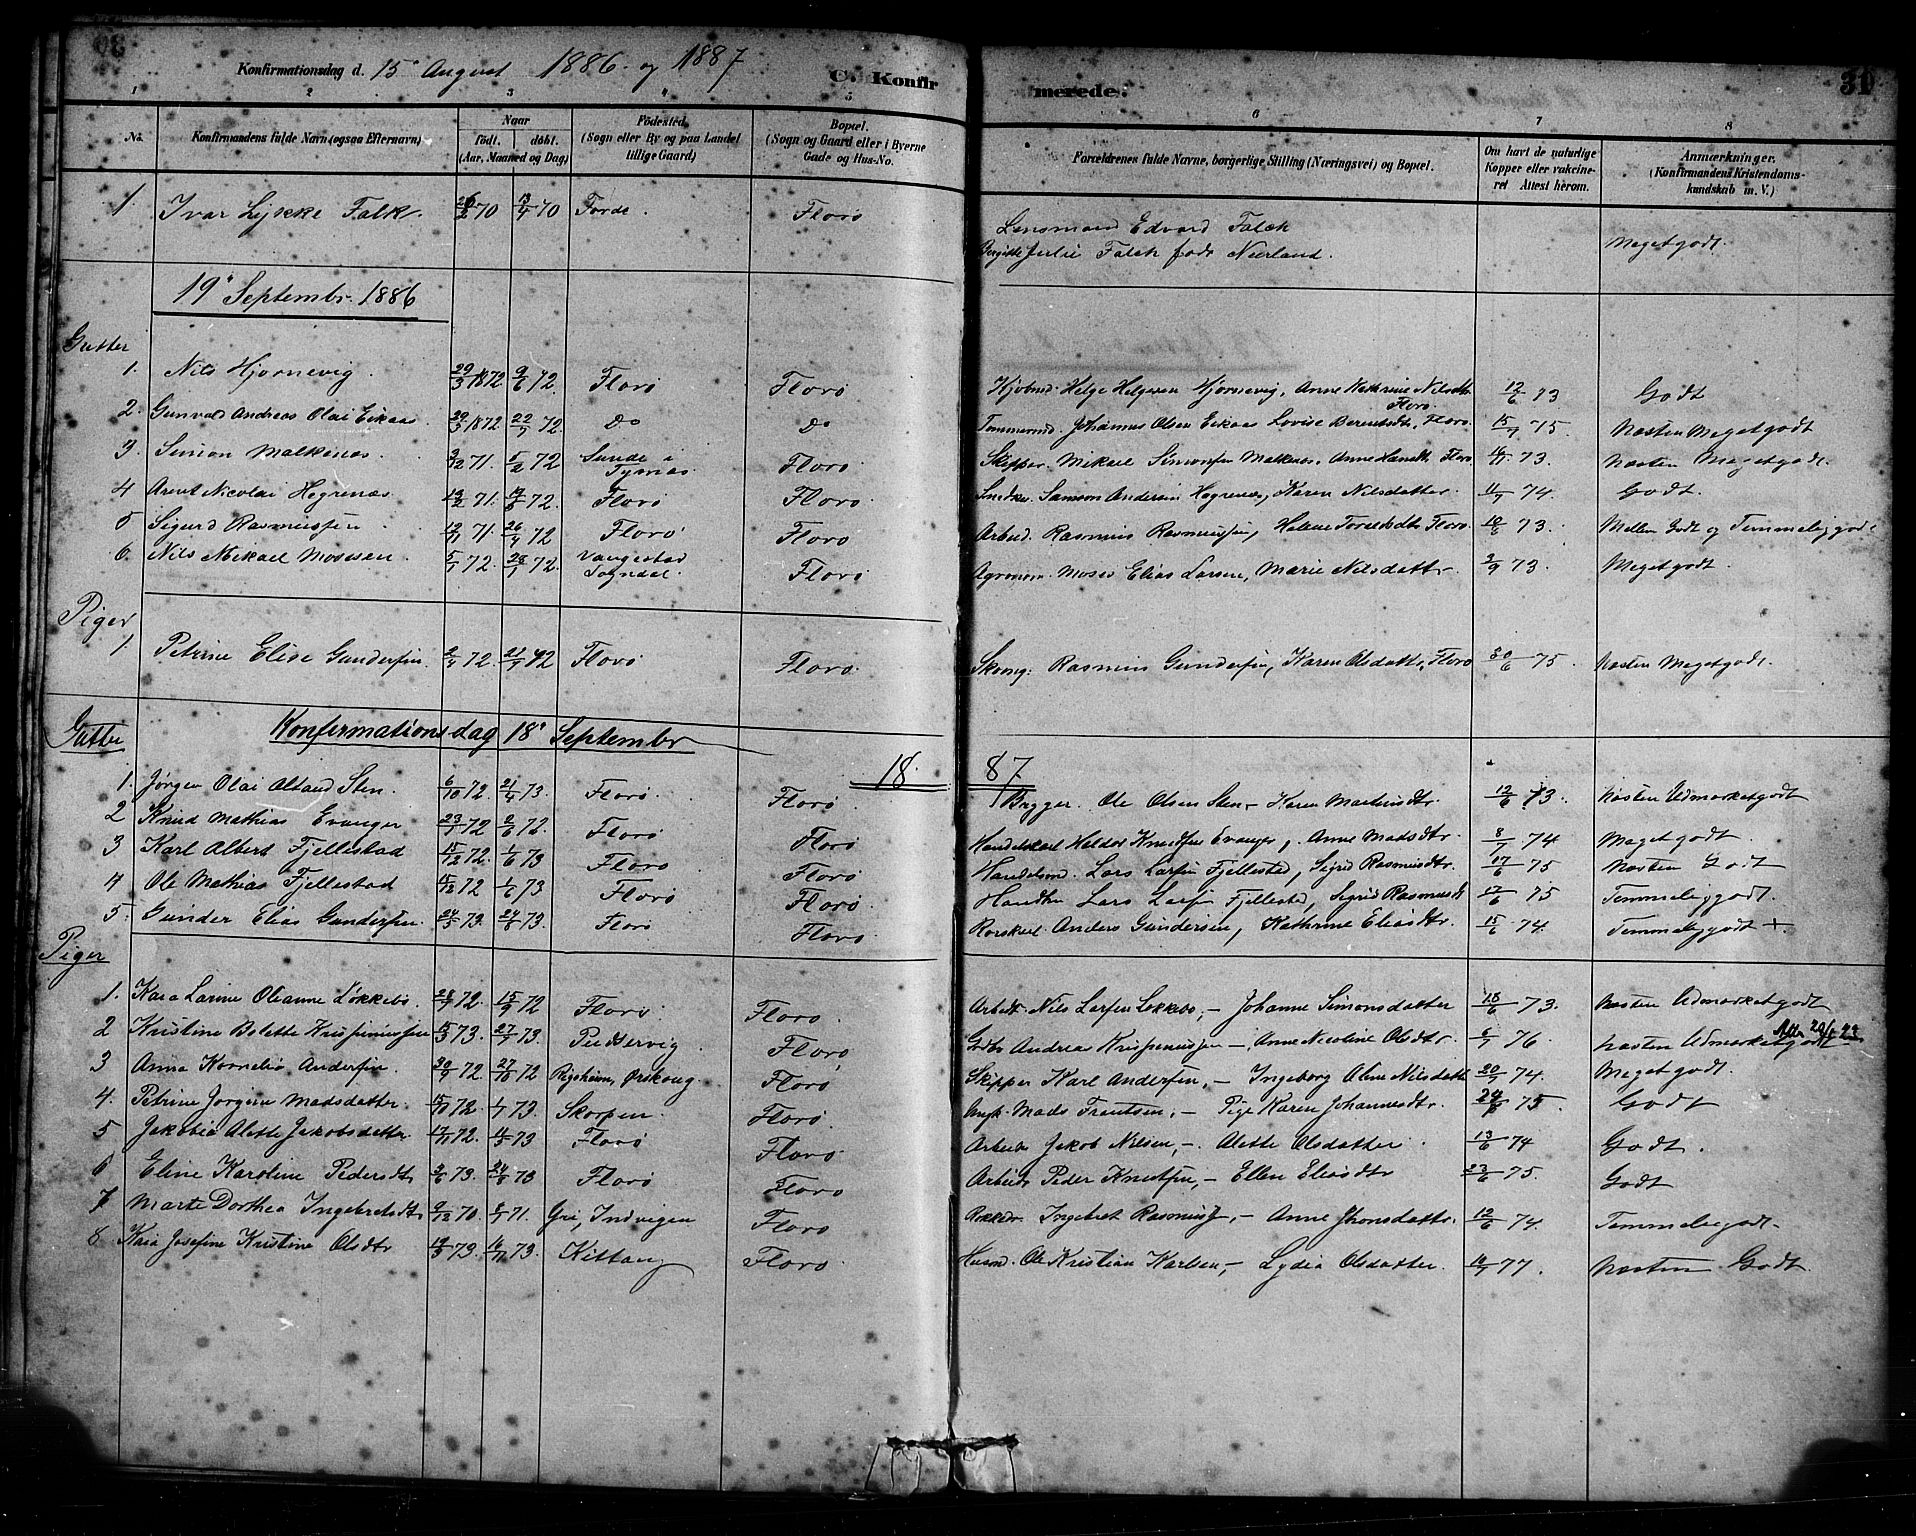 Konfirmationsdag d. 15 August 1886 og 1887
C. Konfirmerede.
31
1 2 3 4 5 6 7 8
No.
Konfirmandens fulde Navn (ogsaa Efternavn)
Naar
födt. döbt.
(Aar, Maaned og Dag)
Födested.
(Sogn eller By og paa Landet tillige Gaard)
Bopæl.
(Sogn og Gaard eller i Byerne Gade og Hus-No.
Forældrenes fulde Navne, borgerlige Stilling (Næringsvei) og Bopæl.
Om havt de naturlige Kopper eller vakcineret Attest herom.
Anmærkninger.
(Konfirmandens Kristendomskundskab m. V.)
1 Ivar Lykke Falk 26/2 70 13/4 70 Førde Florø Lensmand Edvard Falck
Julie Falck født Meget godt.
19' Septembr. 1886
Gutter
1. Nils Hjørnevig 29/3 1872 9/6 72 Florø Florø Helge Helgesen Hjørnevig, Anne Kathrine Nilsdtr Florø 12/6 73 Godt
2. Gunvald Andreas Olai Eikaas 29/3 1872 22/7 72 Do Do Tømmermd. Johannes Olsen Eikaas Lovise Berentsdtr, Florø 15/7 75 Næsten Meget godt
3. Simon Malkenæs 5/2 72 Sunde i Florø Skipper Mikael Simonsen Malkenæs, Anne Florø 73 Næsten Meget godt
4 Arent Nicolai Hegrenæs 71. 72. Florø Florø Snedker Samson Andersen Hegrenæs, Karen Nilsdatter 11/7 74. Godt.
5 Sigurd Rasmussen 12/11 71. 26/4 72 Florø Florø Arbeid. Rasmus Rasmussen, Florø 73. Mellem Godt og Temmelig godt
6. Nils Mikael Mosesen 5/1 72 72 Sogndal. Florø Agronom Moses Elias Larsen, Marie Nilsdatter 2/9 73 Meget godt.
Piger
1. Petrine Elise Gundersen 72. 72 Florø Florø Rasmus Gundersen, Karen Olsdatter, Florø 30/6 75. Næsten Meget godt.
Gutter Konfirmationsdag 18' September 1887
1. Jørgen Olai Altand Sten 6/10 72 21/4 73. Florø Florø Brygger. Ole Olsen Sten – Karen 12/6 73. Næsten Udmærket godt
2 Knud Mathias Evanger 23/7 72 Florø Florø Handelskarl Haldor Knudsen Evanger, Anne Madsdtr. 8/7 74 Meget godt
3 Karl Albert Fjellestad 15/12 72. 1/6 73 Florø Florø Handelsmd. Lars Larsen Fjellestad, Sigrid Rasmusdtr. 17/6 75 Næsten Godt
4 Ole Mathias Fjellestad 15/12 72 1/6 73 Florø Florø Lars Larsen Fjellestad, Sigrid Rasmusdt 17/6 75 Temmelig godt.
5. Gunder Elias Gundersen 24/5 73. 24/8 73. Florø Florø Rorskarl Anders Gundersen, Kathrine Eliasdtr. 15/6 74. Temmelig godt +.
Piger
1. Kaia Larine Oleanne Løkkebø 72. 15/9 72 Florø Florø Arbeidr. Nils Larsen Løkkebø, – Johanne Simonsdatter 73. Næsten Udmærket godt
2 Kristine Bolette Krispinussen 15/3 73. 27/7 73. Florø Andreas Krispinussen –, Anne Nicoline Olsdtr. 76. Næsten Udmærket godt
3 Anna Kornelia Andersen 30/9 72. 27/10 72 Ørskoug Florø Skipper Karl Andersen, – Ingeborg Oline Nilsdatter 20/7 74. Meget godt.
4. Petrine Jørgine Madsdatter 72. 1/1 73. Skorpen Florø Mads Frantsen, – Pige Karen Johannesdtr. 75. Godt
5 Jakobia Alette Jakobsdatter 17/11 72. 73 Florø Florø Arbeid. Jakob Nilsen, –. Alette Olsdatter 13/6 74 Godt.
6 Eline Karoline Pedersdtr 73. 24/8 73 Florø Florø Arbeidr Peder Knudsen, – Ellen Eliasdtr 23/6 75. Godt
7 Marte Dorthea Ingebretsdtr 9/12 70. 71. Indvigen Florø Ingebret Rasmuss, – Anne Jhonsdatter. 12/6 74. Temmelig godt.
8. Kaia Josefine Kristine Olsdtr 73. 73. Kittang Florø Husmd. Ole Kristian Karlsen, – Lydia Olsdatter 77. Næsten Godt.